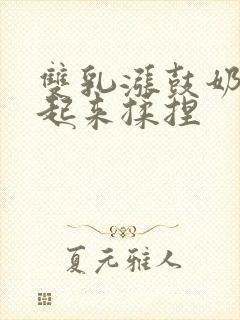 雙乳漲鼓奶
起來揉捏
夏元雅人